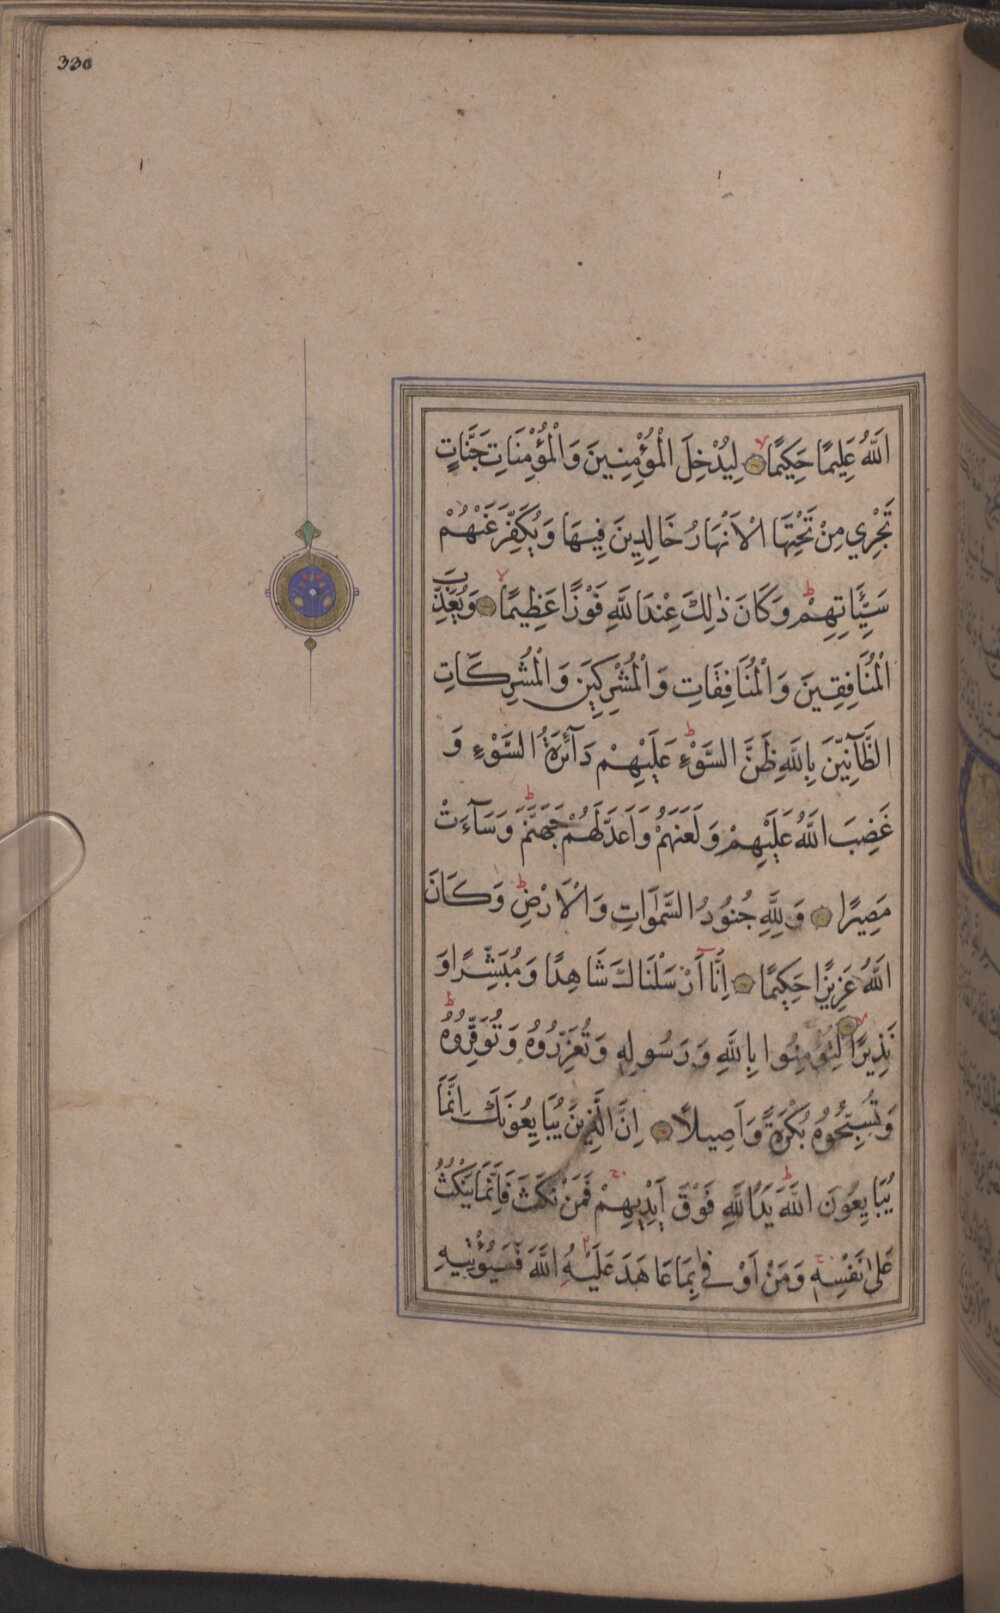 330
اللَّهُ عَلِيمًا حَكِيمًا لِيُدْخِلَ الْمُؤْمِنِينَ وَالْمُؤْمِنَاتِ جَنَّاتٍ
تَجْرِي مِنْ تَحْتِهَا الْاَنْهَارُ خَالِدِينَ فِيهَا وَيُكَفِّرَ عَنْهُمْ
سَيِّئَاتِهِمْ وَكَانَ ذٰلِكَ عِنْدَ اللَّهِ فَوْزًا عَظِيمًا وَيُعَذِّبَ
الْمُنَافِقِينَ وَالْمُنَافِقَاتِ وَالْمُشْرِكِينَ وَالْمُشْرِكَاتِ
الظَّآنِّينَ بِاللَّهِ ظَنَّ السَّوْءِ عَلَيْهِمْ دَآئِرَةُ السَّوْءِ وَ
غَضِبَ اللَّهُ عَلَيْهِمْ وَلَعَنَهُمْ وَاَعَدَّ لَهُمْ جَهَنَّمَ وَسَآءَتْ
مَصِيرًا وَلِلَّهِ جُنُودُ السَّمٰوَاتِ وَالْاَرْضِ وَكَانَ
اللَّهُ عَزِيزًا حَكِيمًا اِنَّا اَرْسَلْنَاكَ شَاهِدًا وَمُبَشِّرًا وَ
نَذِيرًا لِتُؤْمِنُوا بِاللَّهِ وَرَسُولِهِ وَتُعَزِّرُوهُ وَتُوَقِّرُوهُ
وَتُسَبِّحُوهُ بُكْرَةً وَاَصِيلًا اِنَّ الَّذِينَ يُبَايِعُونَكَ اِنَّمَا
يُبَايِعُونَ اللَّهَ يَدُ اللَّهِ فَوْقَ اَيْدِيهِمْ فَمَنْ نَكَثَ فَاِنَّمَا يَنْكُثُ
عَلٰى نَفْسِهِ وَمَنْ اَوْفٰى بِمَا عَاهَدَ عَلَيْهُ اللَّهَ فَسَيُؤْتِيهِ